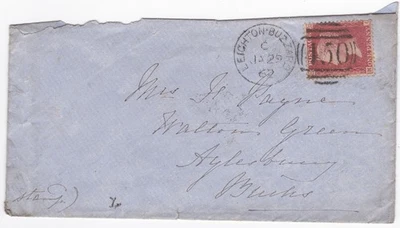 LEIGHTON-BUZZARD
C
JA 29
62
450
Mrs H. Payne
Waltons Green
Aylesbury
Bucks
stamp)